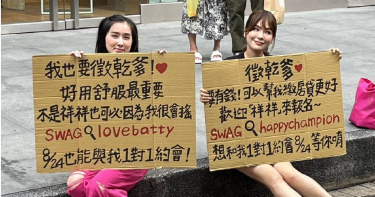 我也要徵乾爹!❤
好用舒服最重要
不是祥祥也可以因為我很會搖
SWAG🔍lovebatty
8/24也能與我1對1約會!
徵乾爹❤
要有錢!可以幫我繳房貸更好
歡迎"祥祥"來報名~
SWAG🔍happychampion
想和我1對1約會8/24等你唷